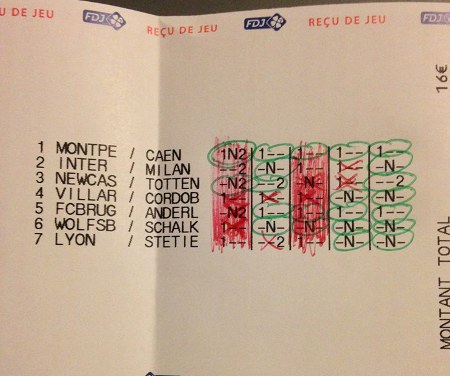 U DE JEU FDJ REÇU DE JEU FDJ REÇU DE JEU FDJ
16€
1 MONTPE / CAEN 1N2 1-- 1-- 1--
2 INTER / MILAN -N-
3 NEWCAS / TOTTEN -N2 --2 -N- --2
4 VILLAR / CORDOB -N-
5 FCBRUG / ANDERL -N2 1-- 1-- -N- -N-
6 WOLFSB / SCHALK -N- -N- -N- -N-
7 LYON / STETIE 1-- --2 1-- -N- -N-
MONTANT TOTAL